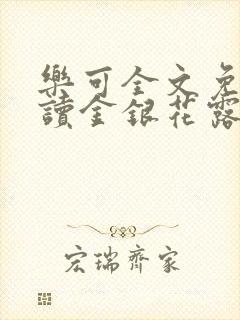 樂可全文免
讀金銀花露
宏瑞齊家